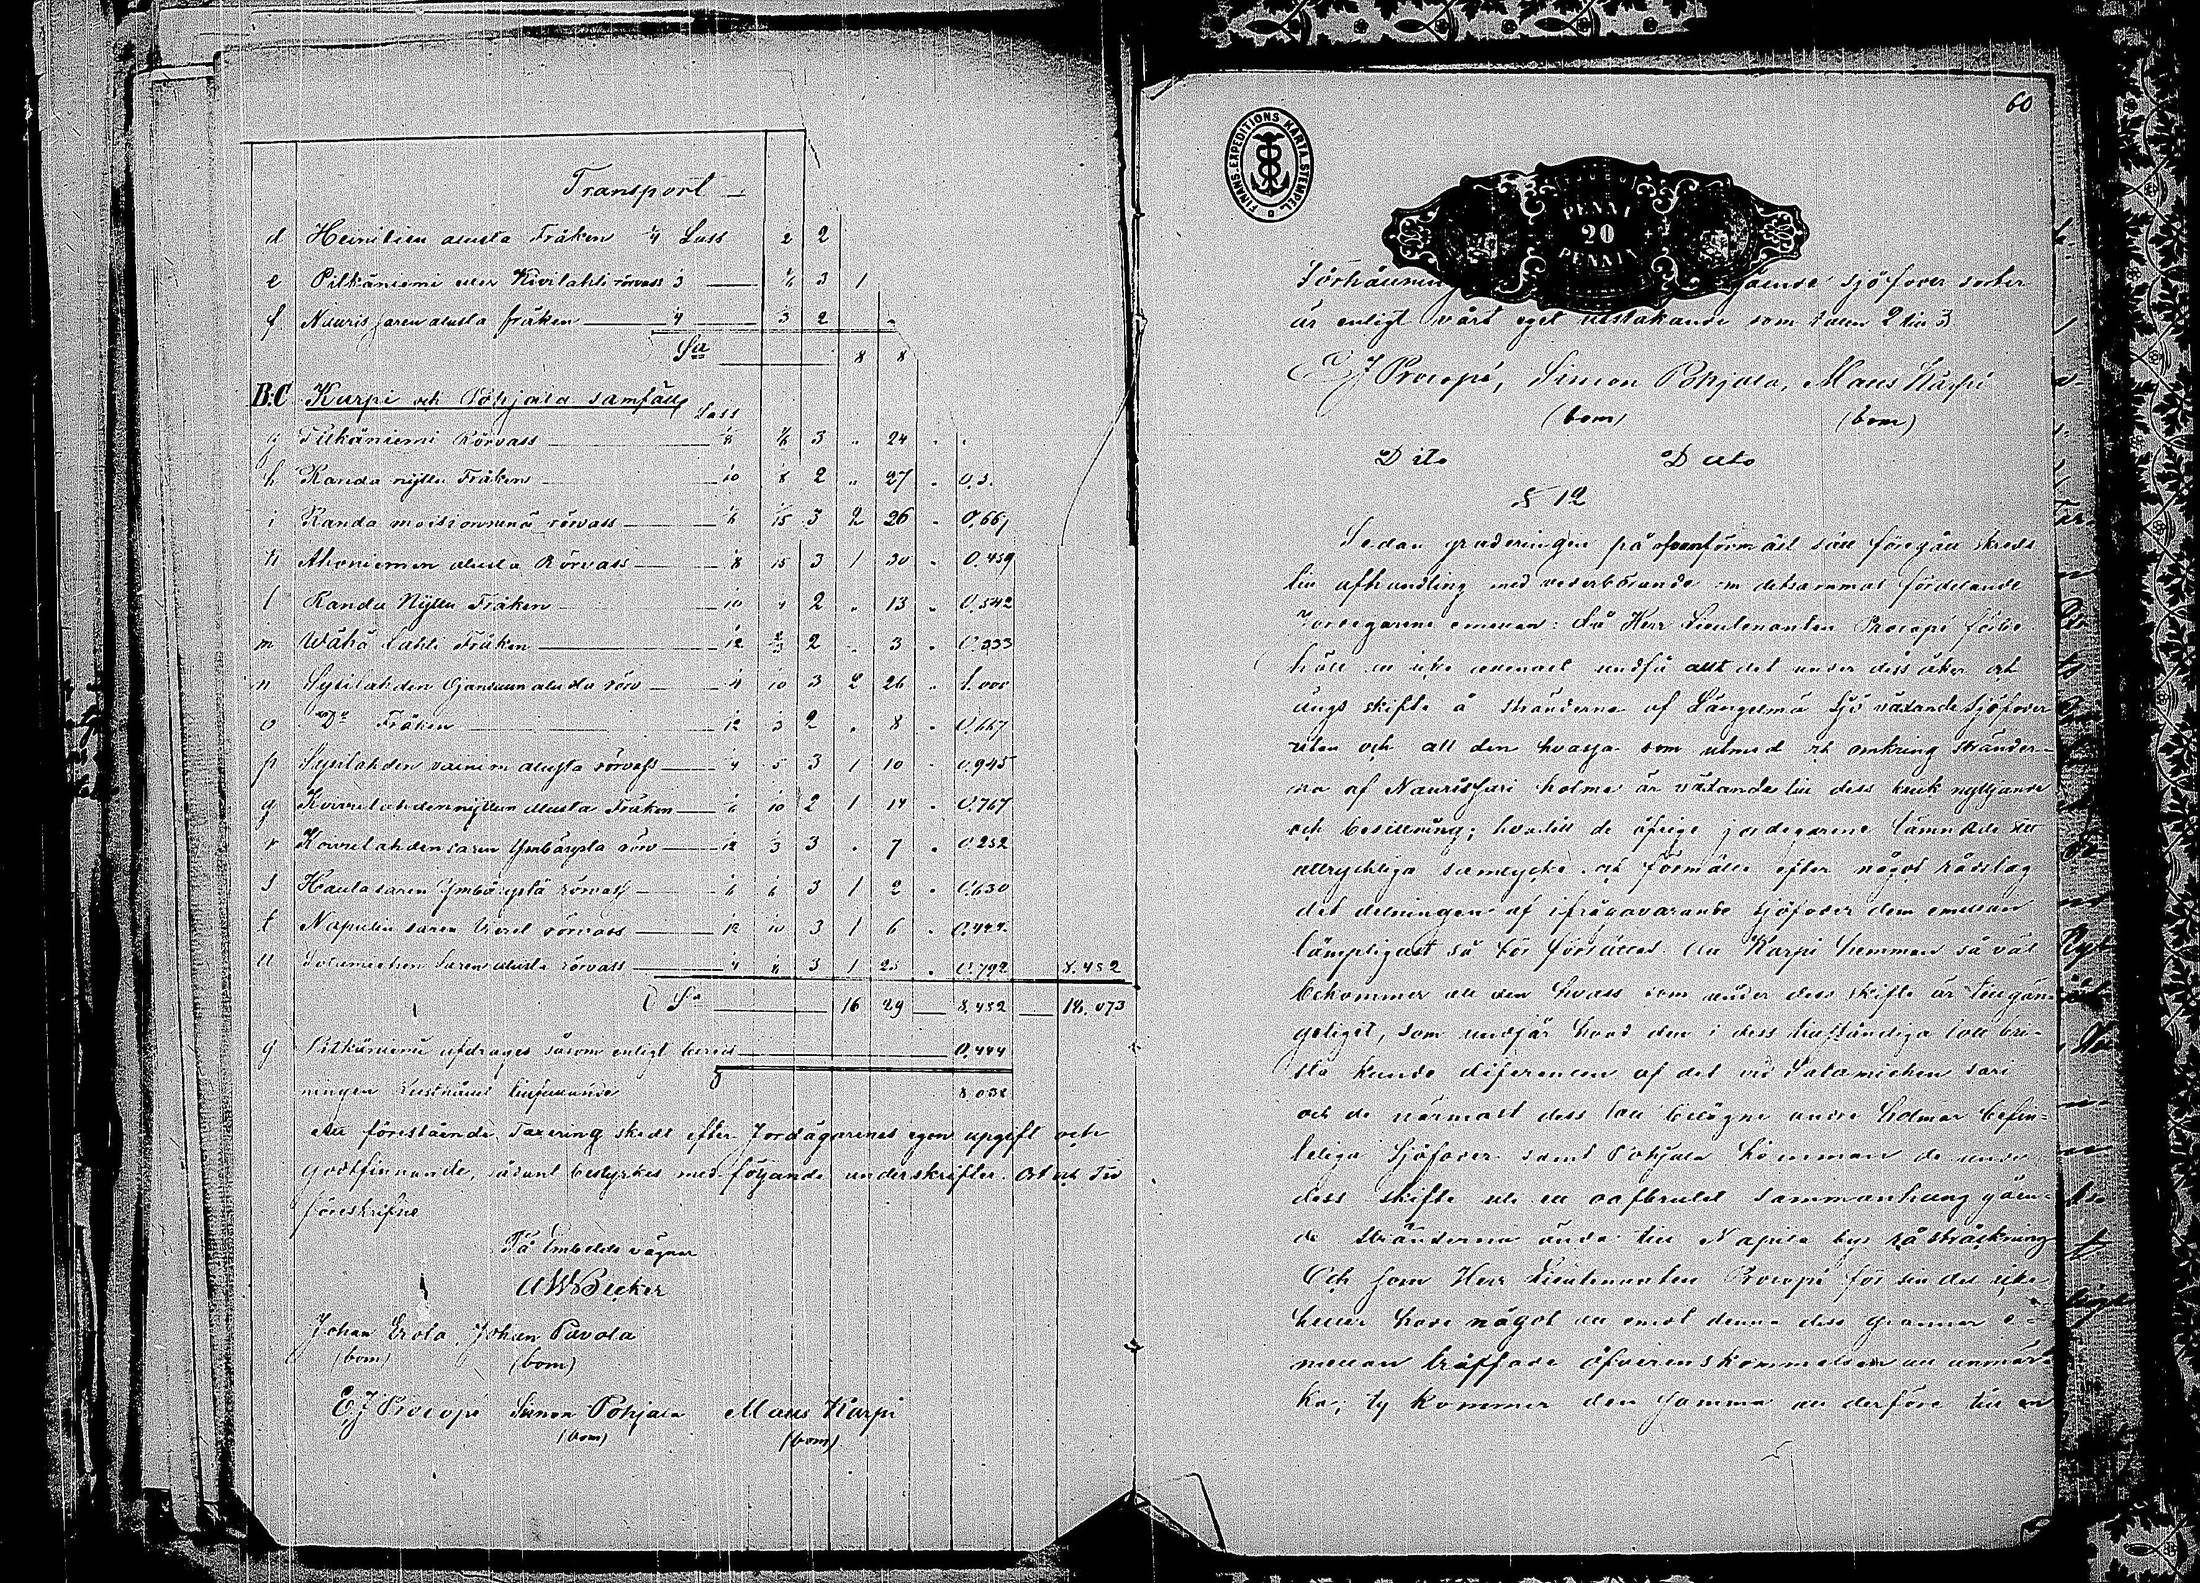 Transport
d Heinitien alusta Fräken ¼ Lass 2 2
e Pitkäniemi eller Kivilahti rörvass 3 ⅙ 3 1
f Nauris saren alusta fräken 4 3 2
Sa 8 8
B.C Karpi och Pohjala samfält
Lass
g Pitkäniemi Rörvass ⅛ ⅙ 3 " 24 "
h Randa nyllu Fräken 1/10 8 2 " 27 " 0,5.
i Randa moisionnenä rörvass ⅙ 1/15 3 2 26 " 0,667
k Ahoniemen alusta Rörvass ⅛ 15 3 1 30 " 0,459
l Randa Nyllu Fräken 1/10 4 2 " 13 " 0,542
m Wähä Lahti Fräken 1/12 ⅔ 2 " 3 " 0,333
n Syrilahden Ojansuun alusta rörv ¼ 10 3 2 26 " 1,000
o Do Fräken 1/12 3 2 " 8 " 0,667
p Syrilahden vainion alusta rörvass ¼ 5 3 1 10 " 0,945
q Koivulahden nyllun alusta Fräken ⅙ 10 2 1 14 " 0,767
r Koivulahden saren Ymbärysta rörv 1/12 3 3 " 7 " 0,252
s Hauta saren Ymbärystä rörvass ⅙ 6 3 1 2 " 0,630
t Napulin saren Vierel rörvass 1/12 10 3 1 6 " 0,444
u Satamichen Saren alusta rörvass ¼ 8 3 1 23 " 0,792 8,452
Sa 16 29 8,452 18,073
g Pitkäniemi afdrages såsom enligt beräk 0,444
ningen Lustnäs tillfallande 8,038
Att förestående Taxering skedt efter Jordägarenes egen upgift och
godtfinnande, sådant bestyrkes med följande underskrifter. Ort och Tid
föreskrifne
På Embetets vägnar
AWBecker
Johan Erola, Johan Pavola
(bom) (bom)
CJ Procopé Simon Pohjala Maus Karpi
(bom) (bom)
60
FINANS.EXPEDITIONS KARTA.STEMPEL
PENNI
20
PENNIÄ
Förhållning gående sjöfoder sorter
är enligt vårt eget utstakande som talen 2 till 3
CJ Procopé, Simon Pohjala, Maus Karpi
(bom) (bom)
Dito Dito
§ 12
Sedan graderingen på ofvanförmält sätt föregått skreds
till afhandling med vederbörande om detsammas fördelande
Jordegarne emellan: då Herr Lieutenanten Procopé förbe-
höll sig icke allenast undfå allt det under dess åker och
ängs skifte å stränderne af Längelmä Sjö växande Sjöfoder
utan och all den hvassa som utmed och omkring stränder-
na af Naurissari holme är växande till dess bruk nyttjande
och besittning; hvartill de öfrige jordegarene lämnade sitt
uttryckliga samtycke och förmälte efter något rådslag
det delningen af ifrågavarande sjöfoder dem emellan
lämpligast så bör förrättas att Karpi hemman så väl
bekommer all den hvass som under dess skifte är tillgän-
geligit, som undfår hvad den i dess tillständiga lott bri-
sta kunde diferencen af det vid Satamichen sari
och de närmast dess lott belägne andre holmar befin-
teliga Sjöfoder samt Pohjala hemman de under
dess skifte uti en oafbrutet sammanhang gåen-
de stränderna ända till Napila bys råsträckning
Och som Herr Lieutenanten Procopé för sin del icke
heller hade något att emot denna dess grannar e-
mellan träffade öfverenskommelsen att anmär-
ka; ty kommer den samma att derföre till en